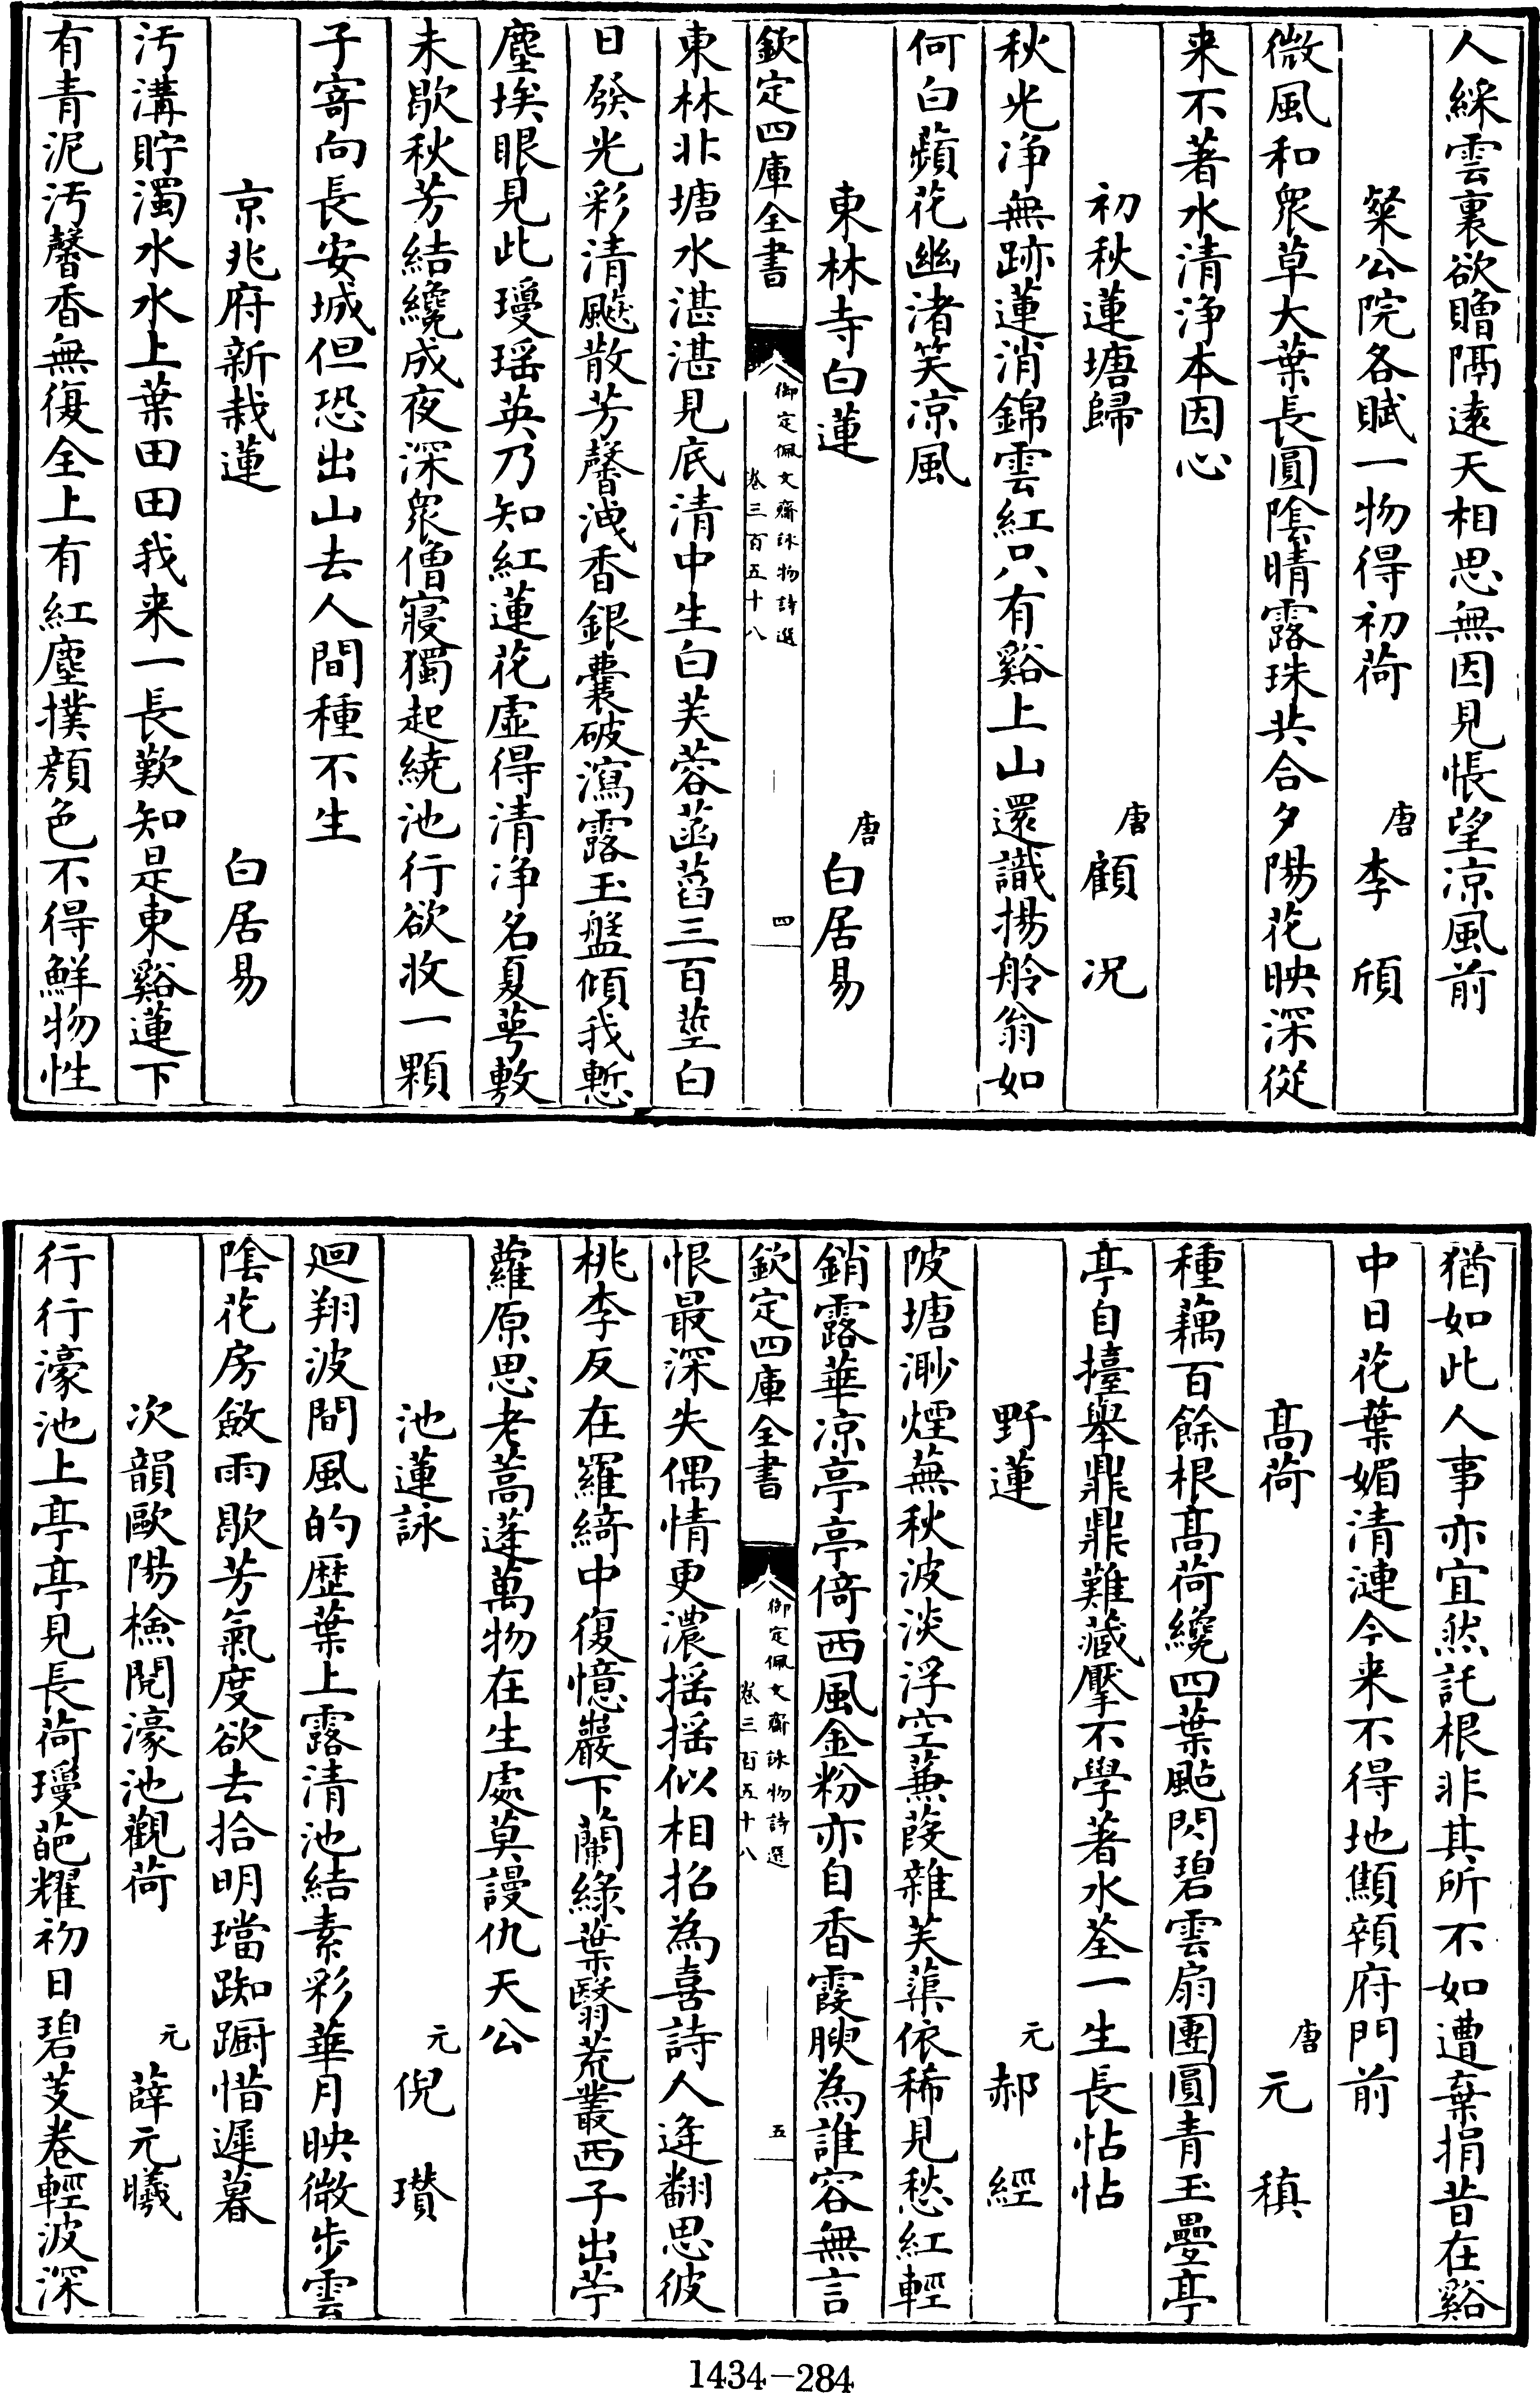 人綵雲裏欲贈隔逺天相思無因見悵望凉風前
粲公院各賦一物得初荷　唐李頎
微風和衆草大葉長圓陰晴露珠共合夕陽花映深從
来不著水清浄本因心
初秋蓮塘歸　唐顧況
秋光浄無跡蓮消錦雲紅只有谿上山還識揚舲翁如
何白蘋花幽渚笑凉風
東林寺白蓮　唐白居易
欽定四庫全書　御定佩文齋詠物詩選卷三百五十八　四
東林北塘水湛湛見底清中生白芙蓉菡萏三百莖白
日發光彩清飈散芳馨洩香銀囊破瀉露玉盤傾我慙
塵埃眼見此瓊瑶英乃知紅蓮花虚得清浄名夏萼敷
未歇秋芳結纔成夜深衆僧寝獨起繞池行欲收一顆
子寄向長安城但恐出山去人間種不生
京兆府新栽蓮　白居易
汚溝貯濁水水上葉田田我来一長歎知是東谿蓮下
有青泥汚馨香無復全上有紅塵撲顔色不得鮮物性
猶如此人事亦宜然託根非其所不如遭棄捐昔在谿
中日花葉媚清漣今来不得地顦顇府門前
髙荷　唐元稹
種藕百餘根髙荷纔四葉颭閃碧雲扇團圓青玉疊亭
亭自擡舉鼎鼎難藏擪不學著水荃一生長怗怗
野蓮　元郝經
陂塘渺煙蕪秋波淡浮空蒹葭雜芙蕖依稀見愁紅輕
銷露華凉亭亭倚西風金粉亦自香霞腴為誰容無言
欽定四庫全書　御定佩文齋詠物詩選卷三百五十八　五
恨最深失偶情更濃揺揺似相招為喜詩人逢翻思彼
桃李反在羅綺中復憶巖下蘭綠葉翳荒叢西子出苧
蘿原思老蒿蓬萬物在生處莫謾仇天公
池蓮詠　元倪瓚
迴翔波間風的歴葉上露清池結素彩華月映微步雲
陰花房斂雨歇芳氣度欲去拾明璫踟蹰惜遲暮
次韻歐陽檢閱濠池觀荷　元薛元曦
行行濠池上亭亭見長荷瓊葩耀初日碧芰卷輕波深
1434-284